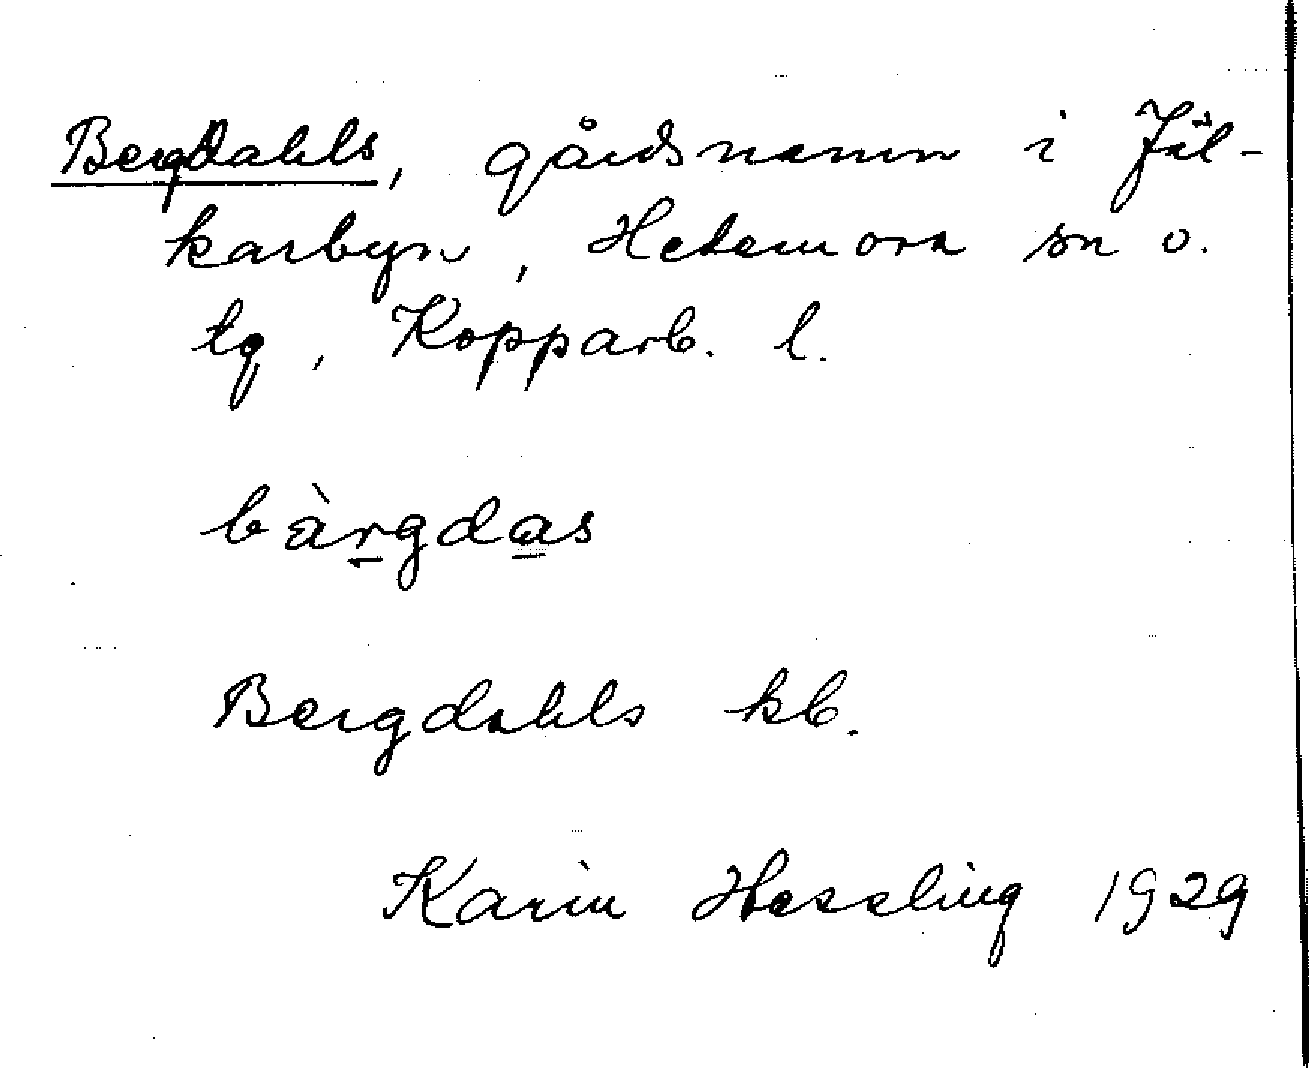 Bergdahls, gårdsnamn i Jäl-
karbyn, Hedemora sn o.
tg, Kopparb. l.
bàrgdas
Bergdahls kb.
Karin Hessling 1929